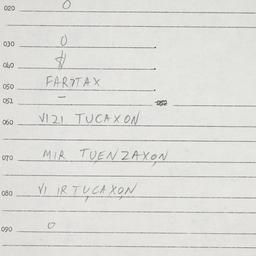 020 0
030 0
040
050 FARQTAX
051 – 052
060 VIZI TUCAXON
070 MIR TUENZAXON
080 VI IR TUCAXON
090 0